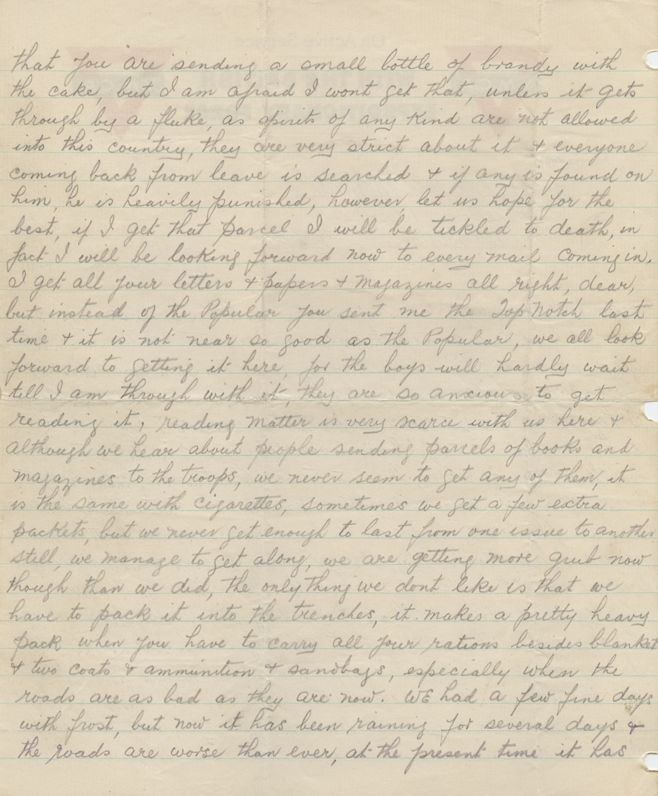 that you are sending a small bottle of brandy with
the cake, but I am afraid I wont get that, unless it gets
through by a fluke, as spirits of any kind are not allowed
into this country, they are very strict about it & everyone
coming back from leave is searched & if any is found on
him, he is heavily punished, however let us hope for the
best, if I get that parcel I will be tickled to death, in
fact I will be looking forward now to every mail coming in.
I get all your letters & papers & magazines all right, dear,
but instead of the Popular you sent me the Top Notch last
time & it is not near so good as the Popular, we all look
forward to getting it here, for the boys will hardly wait
till I am through with it, they are so anxious to get
reading it, reading matter is very scarce with us here &
although we hear about people sending parcels of books and
magazines to the troops, we never seem to get any of them, it
is the same with cigarettes, sometimes we get a few extra
packets, but we never get enough to last from one issue to another
still, we manage to get along, we are getting more grub now
though than we did, the only thing we dont like is that we
have to pack it into the trenches, it makes a pretty heavy
pack when you have to carry all your rations besides blanket
& two coats & ammunition & sandbags, especially when the
roads are as bad as they are now. We had a few fine days
with frost, but now it has been raining for several days &
the roads are worse than ever, at the present time it has